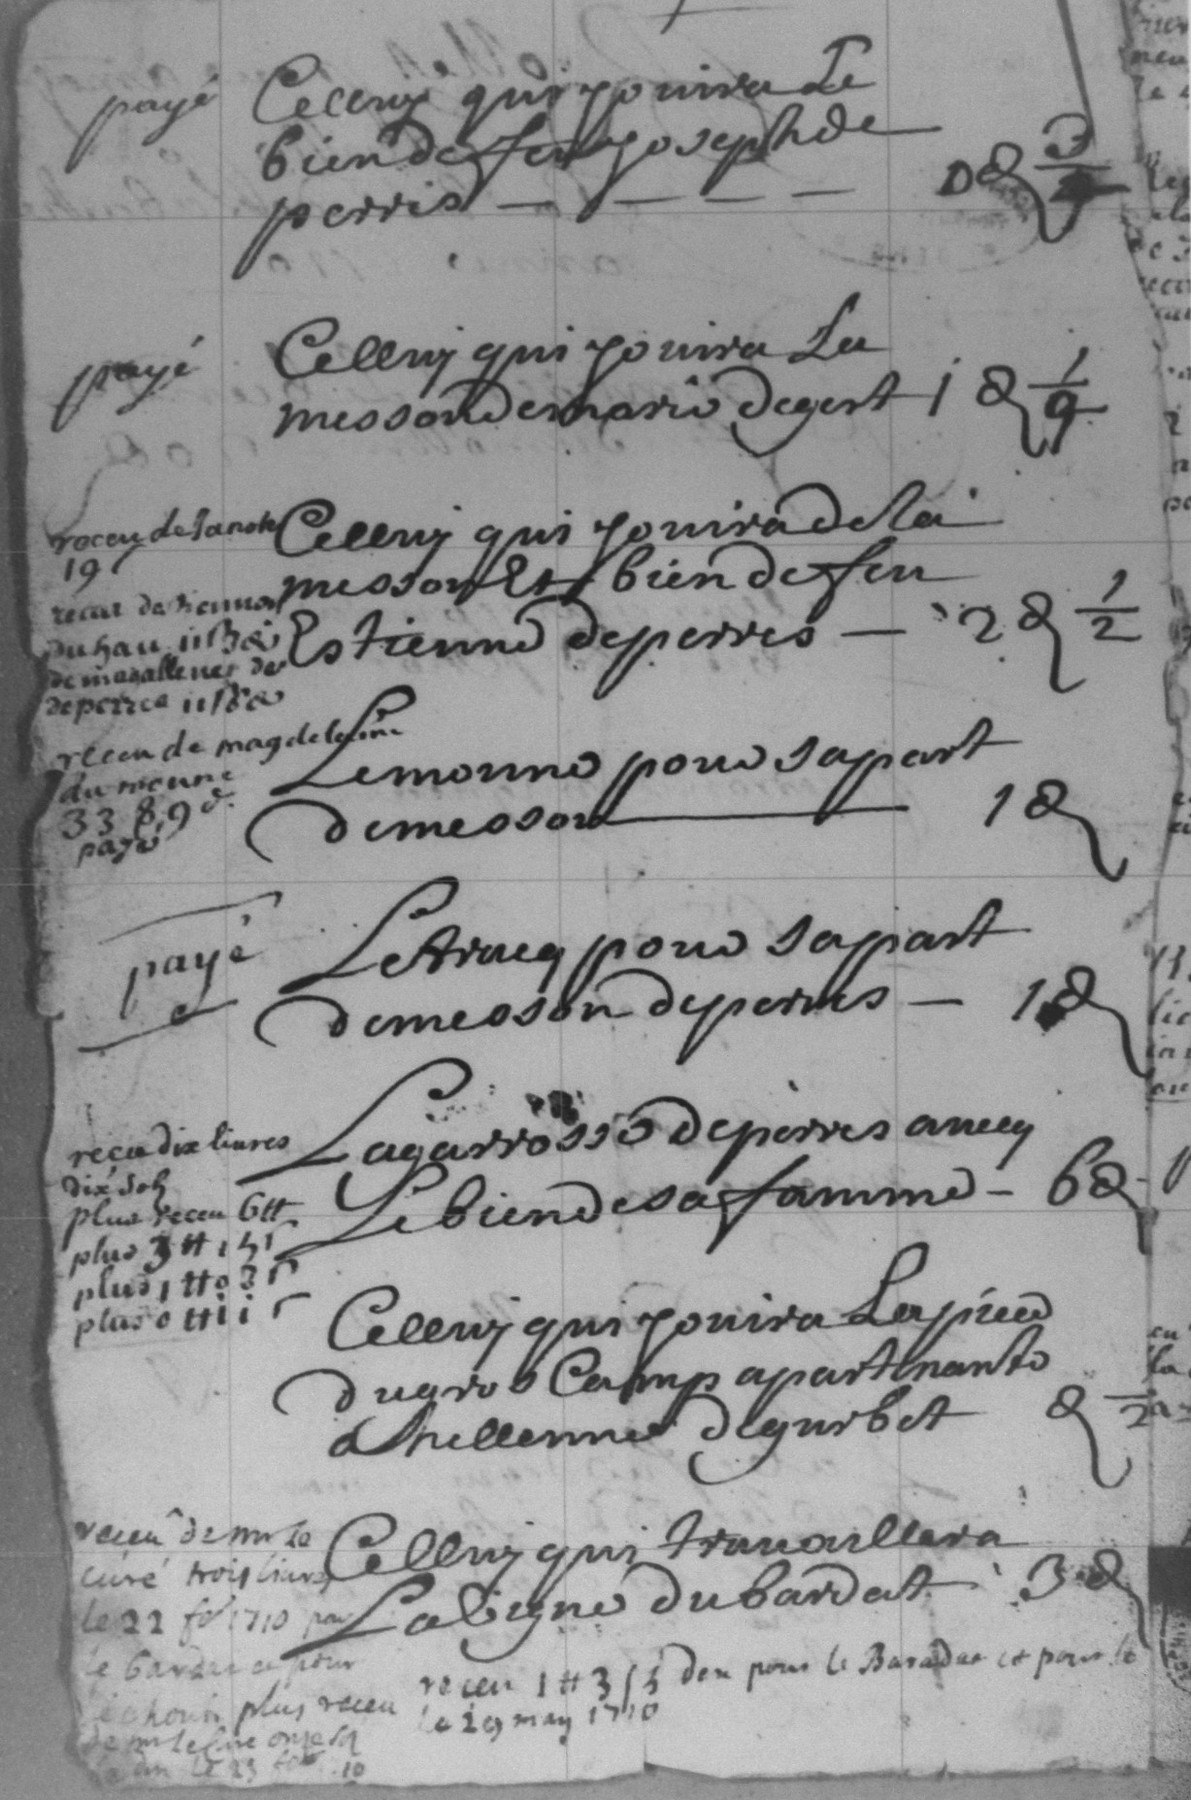 payé
Celluy qui jouira Le
bien de feu Joseph de
perris — — — — 0 &
payé
Celluy qui jouira La
messon de marie degert 1 & 1/9
receu de
19 s
Celluy qui jouira de la
messon Et bien de feu
Estienne deperres — 2 & 1/2
receu de
duhau
deperres
receu de magdeleine
du moune
33 s 9 d
payé
Lemoune pour sa part
de messon 1 &
payé
Letrucq pour sa part
de messon deperres — 1 &
receu dix liures
dix sols
plus receu 6 tt
plus 3 tt
plus 1 tt 0 3 s
plus 0 tt ii s
Lagarrosse deperres auecq
Le bien de sa famme — 6 &
Celluy qui jouira La piece
du gros Camp apartenante
a hellenne degurbet &
receu de mr le
curé trois liures
le 22 fer 1710 par
le bardat et pour
plus receu
de mr le cure onze sols
le 23 10
Celluy qui trauaillera
La bigne du bardat 3 &
receu 1 tt 3 s pour le Baradat et pour le
le 29 may 1710